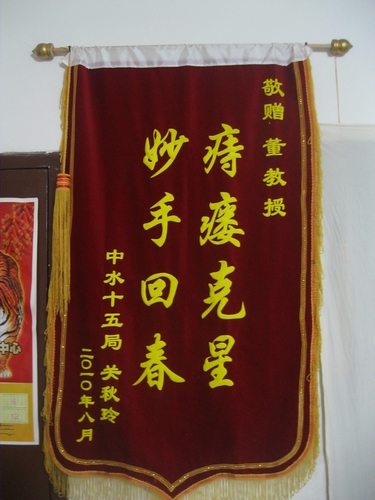 敬赠 董教授
痔瘘克星
妙手回春
中水十五局 关秋玲
二〇一〇年八月
中心